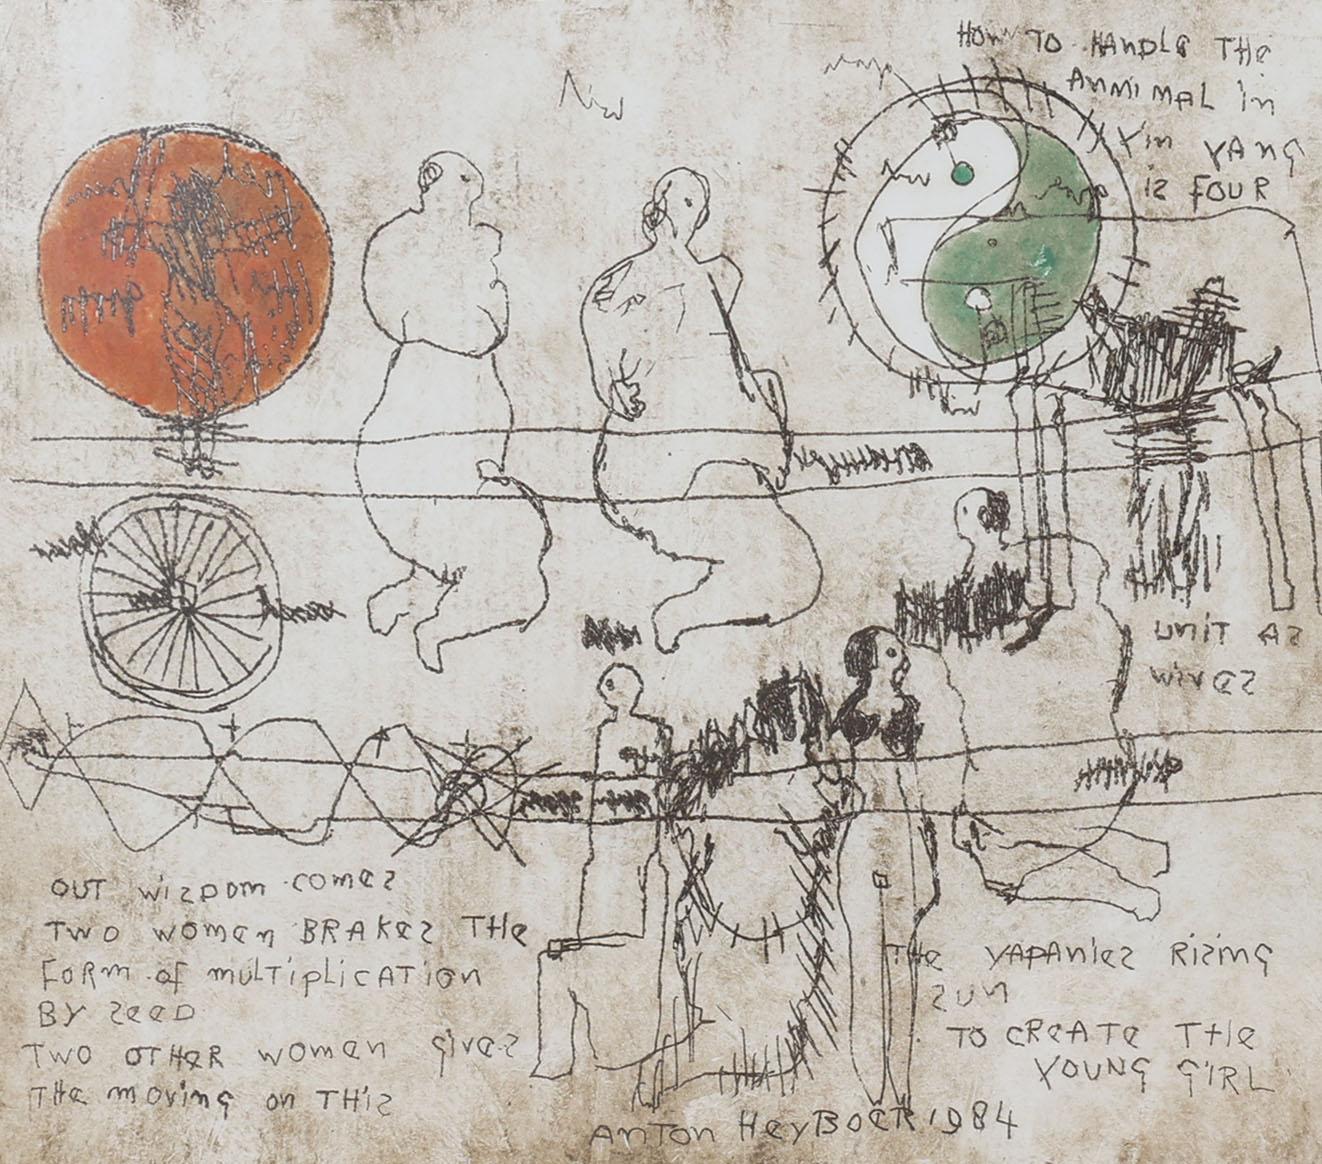 HOW TO HANDLE THE
ANNIMAL in
Yin YANG
is FOUR
UNIT AS
wives
OUT wisdom comes
TWO women BRAKES THE
FORM of multiplicATion
BY SEED
TWO OTHER women gives
THE moving on THis
THE YAPANies RISING
SUN
TO CREATE THE
YOUNG GIRL
ANTON HeyBOER 1984